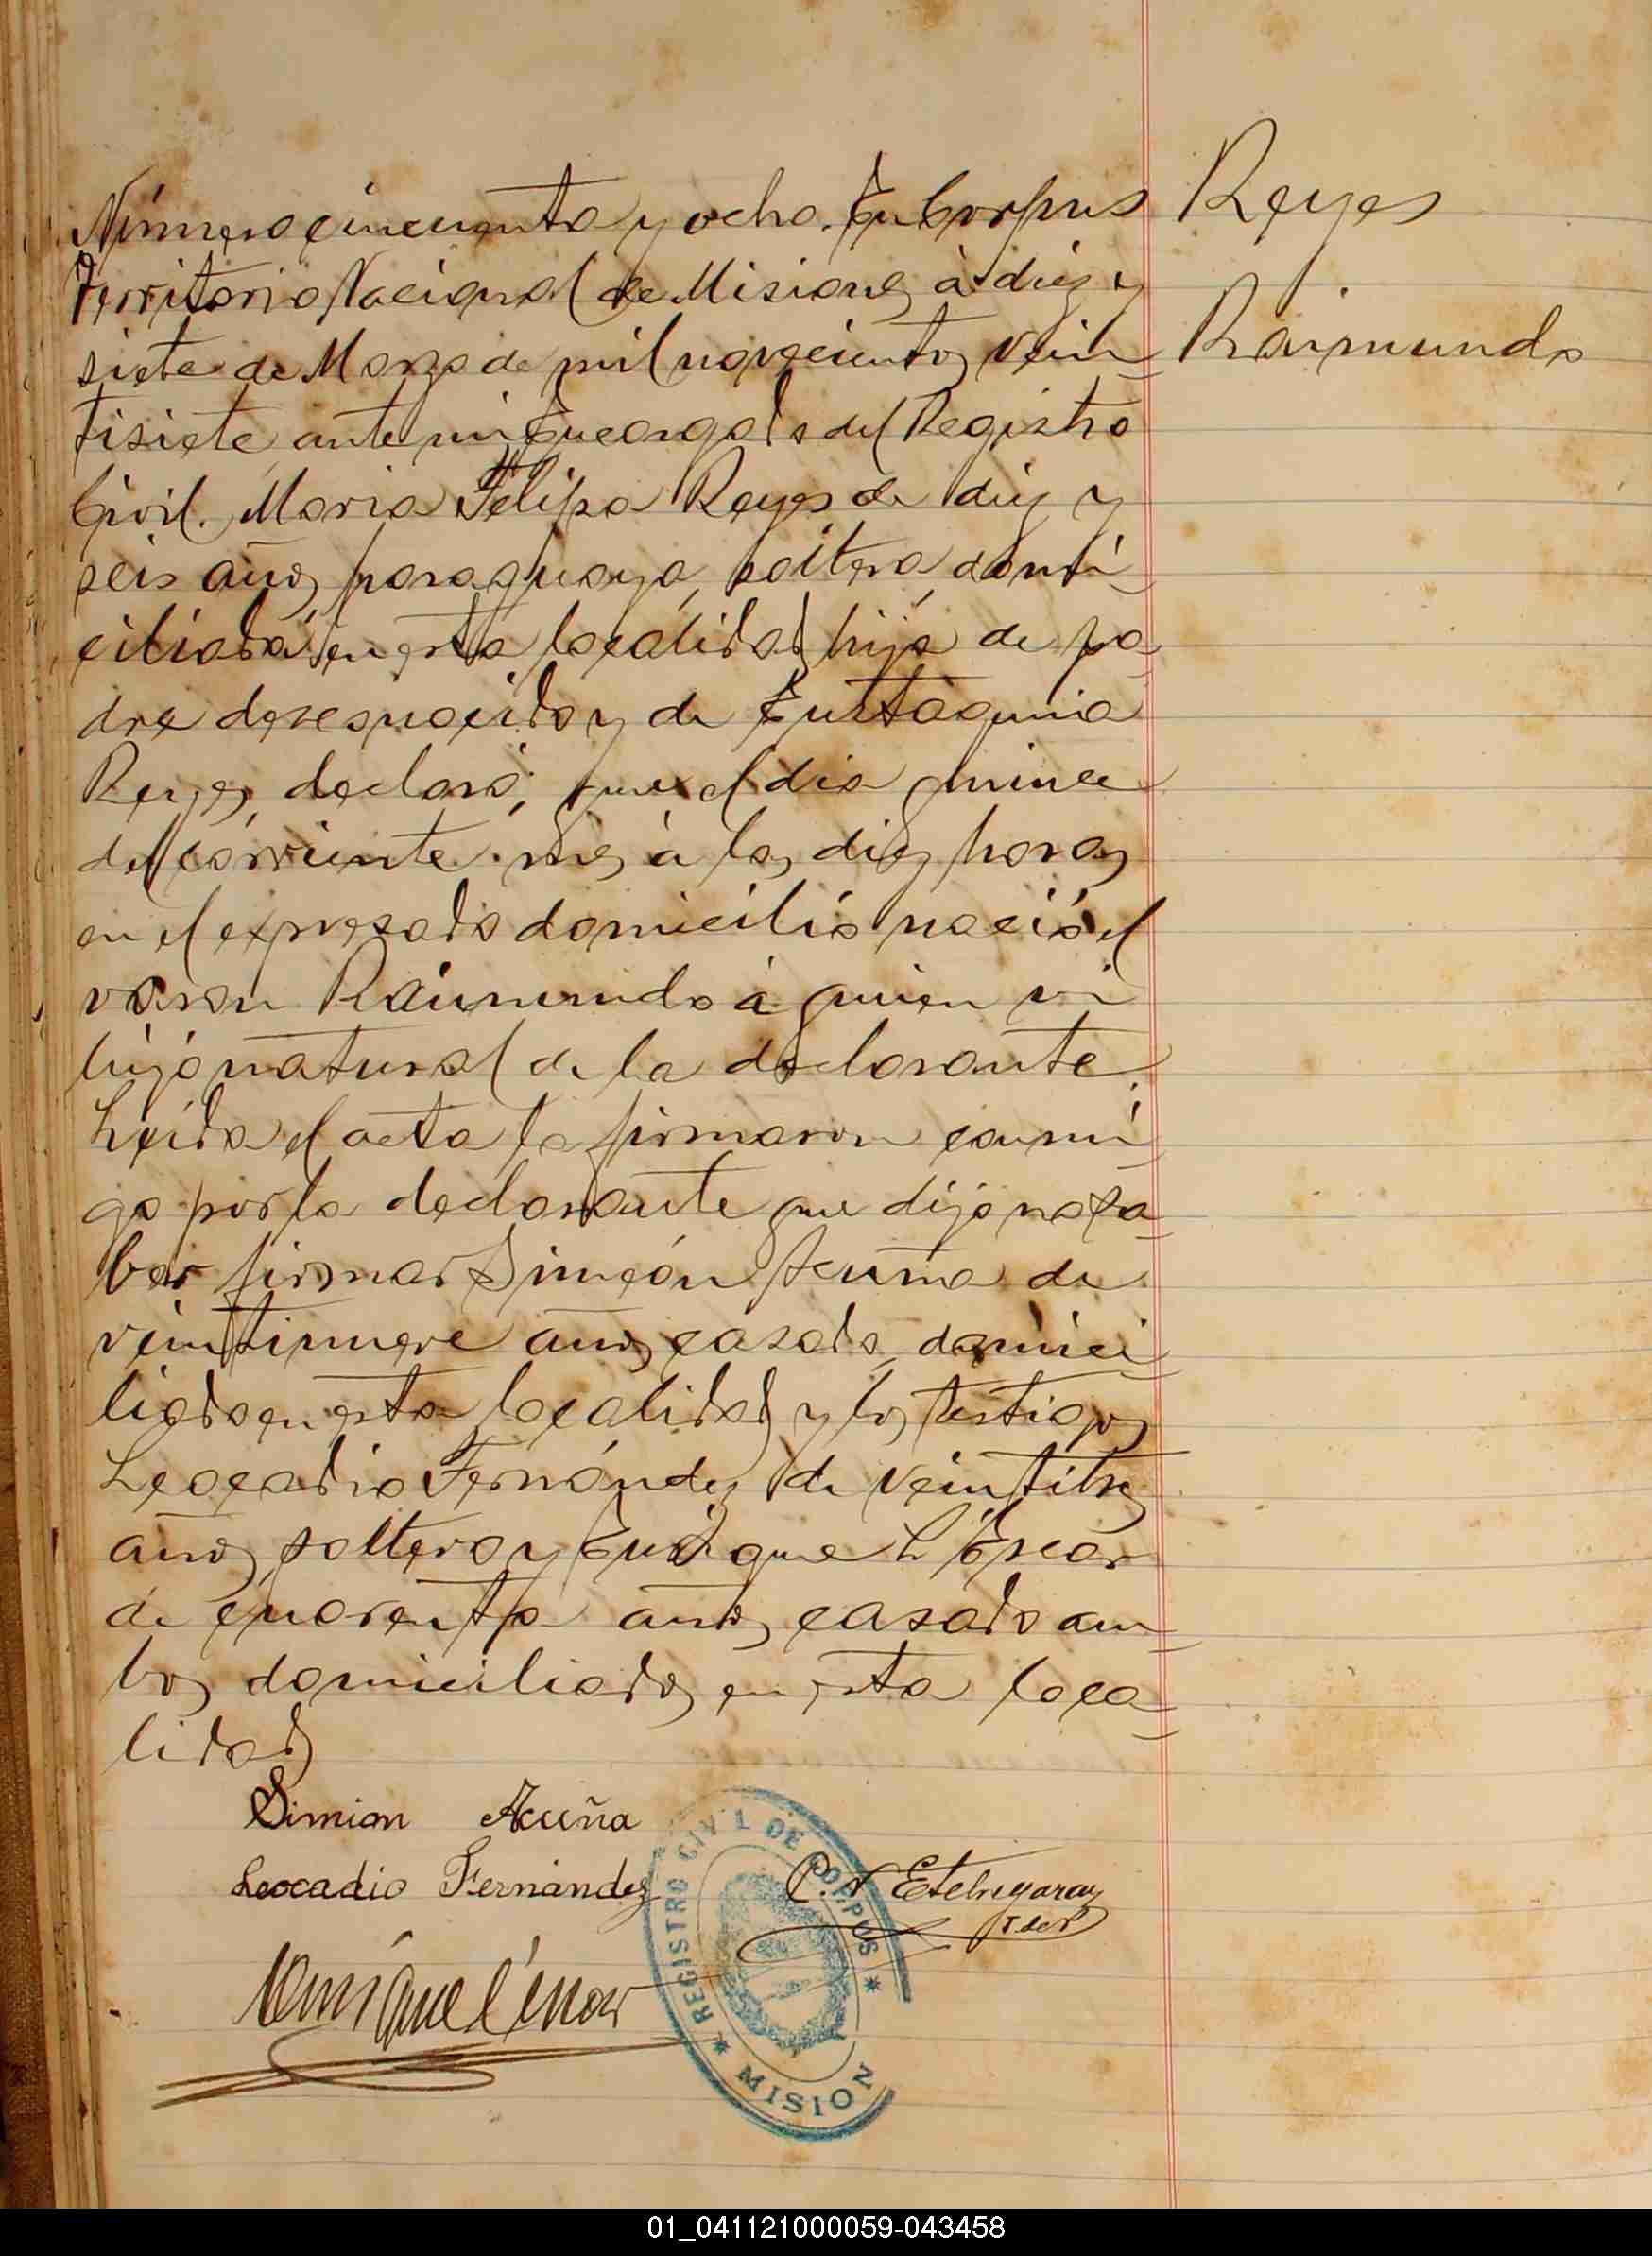 Número cincuenta y ocho. En Corpus
Territorio Nacional de Misiones, à diez y
siete de Marzo de mil novecientos vein
tisiete, ante mi, Encargado del Registro
Civil. Maria Felipa Reyes de diez y
seis años, paraguaya, soltera, domi
ciliada en esta localidad, hija de pa
dre desconocido y de Eustaquia
Reyes, declaró; que el dia quince
del corriente mes à las diez horas
en el expresado domicilio nació el
varon Raimundo à quien vi
hijo natural de la declarante.
Leida el acta la firmaron conmi
go por la declarante que dijo no sa
ber firmar Simeón Acuña de
veintinueve años, casado, domici
liado en esta localidad y los testigos
Leocadio Fernández de veintitres
años, soltero y Enrique L'Escar
de cuarenta años, casado am
bos domiciliados en esta loca
lidad
Reyes
Raimundo
Simion Acuña
Leocadio Fernandez
C. Etchegaray
Enrique
REGISTRO CIVIL DE CORPUS
MISION
01_041121000059-043458